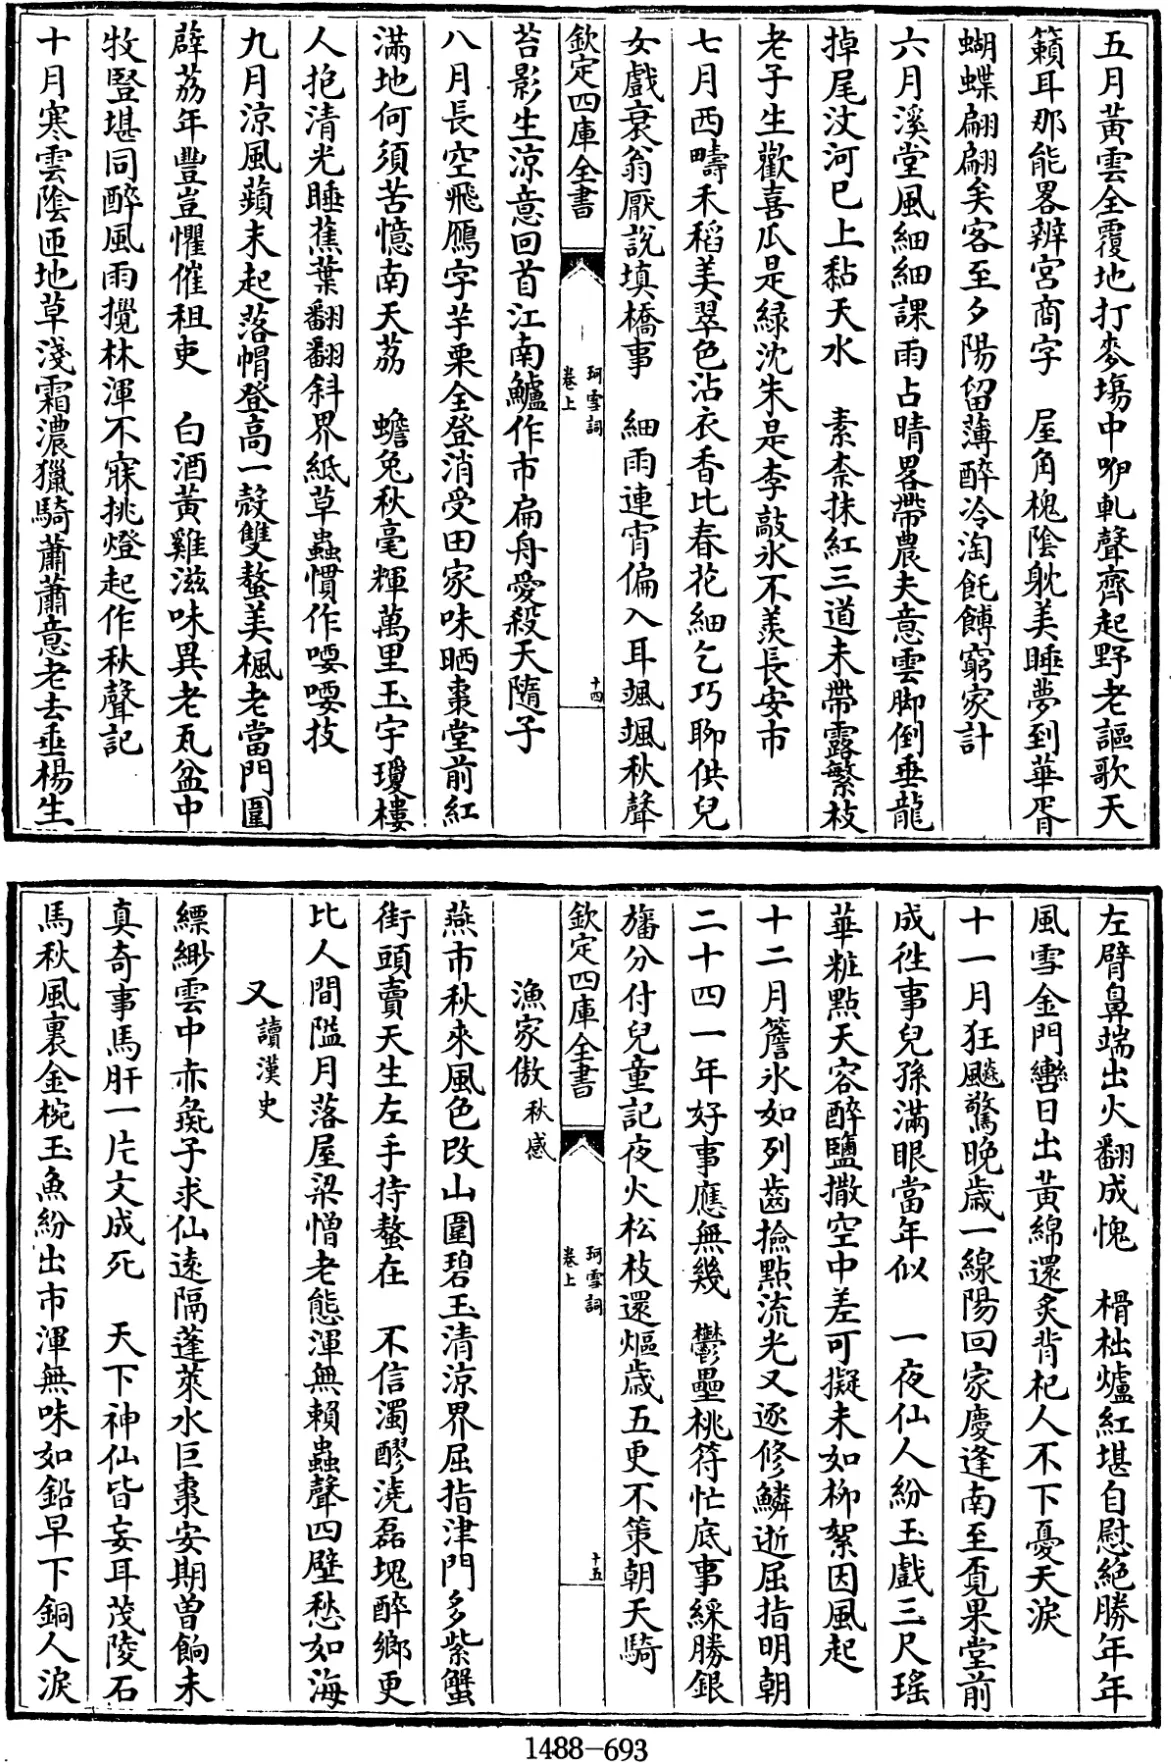 五月黃雲全覆地打麥塲中咿軋聲齊起野老謳歌天
籟耳那能畧辨宮商字　屋角槐陰躭美睡夢到華胥
蝴蝶翩翩矣客至夕陽留薄醉冷淘飥餺窮家計
六月溪堂風細細課雨占晴畧帶農夫意雲脚倒垂龍
掉尾汶河已上黏天水　素柰抹紅三道未帶露繁枝
老子生歡喜瓜是綠沈朱是李敲氷不羨長安市
七月西疇禾稻美翠色沾衣香比春花細乞巧聊供兒
女戲衰翁厭說填橋事　細雨連宵偏入耳颯颯秋聲
欽定四庫全書
珂雪詞
卷上
十四
苔影生涼意回首江南鱸作市扁舟愛殺天隨子
八月長空飛鴈字芋栗全登消受田家味晒棗堂前紅
滿地何須苦憶南天荔　蟾兔秋毫輝萬里玉宇瓊樓
人抱清光睡蕉葉翻翻斜界紙草蟲慣作嘤嘤技
九月涼風蘋末起落帽登高一殼雙螯美楓老當門圍
薜荔年豐豈懼催租吏　白酒黃雞滋味異老瓦盆中
牧豎堪同醉風雨攪林渾不寐挑燈起作秋聲記
十月寒雲陰匝地草淺霜濃獵騎蕭蕭意老去垂楊生
左臂鼻端出火翻成愧　榾柮爐紅堪自慰絕勝年年
風雪金門轡日出黃綿還炙背杞人不下憂天淚
十一月狂飈驚晚歲一線陽回家慶逢南至覔果堂前
成徃事兒孫滿眼當年似　一夜仙人紛玉戲三尺瑤
華粧點天容醉鹽撒空中差可擬未如柳絮因風起
十二月簷氷如列齒撿點流光又逐修鱗逝屈指明朝
二十四一年好事應無幾　鬱壘桃符忙底事綵勝銀
旛分付兒童記夜火松枝還熰歲五更不策朝天騎
欽定四庫全書
珂雪詞
卷上
十五
漁家傲秋感
燕市秋來風色改山圍碧玉清涼界屈指津門多紫蟹
街頭賣天生左手持螯在　不信濁醪澆磊塊醉鄉更
比人間隘月落屋梁憎老態渾無賴蟲聲四壁愁如海
又讀漢史
縹緲雲中赤彘子求仙遠隔蓬萊水巨棗安期曽餉未
真奇事馬肝一片文成死　天下神仙皆妄耳茂陵石
馬秋風裏金椀玉魚紛出市渾無味如鉛早下銅人淚
1488—693